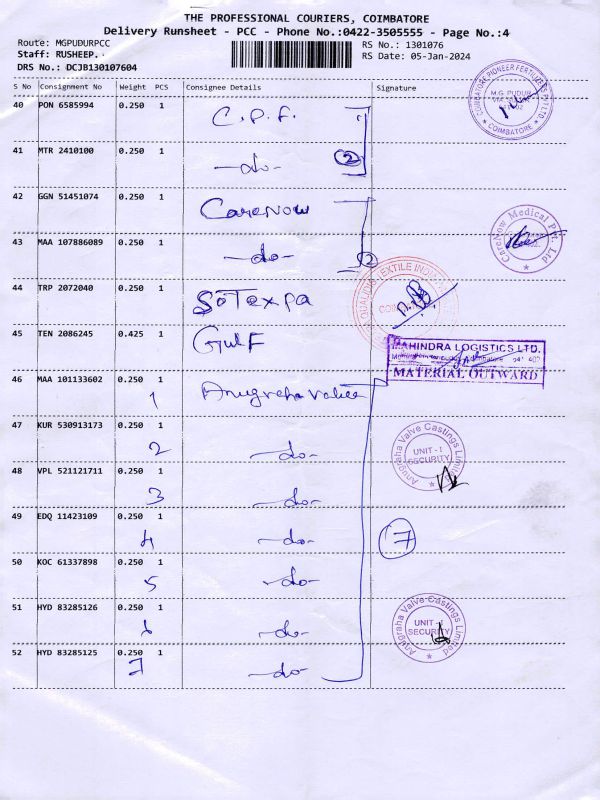 THE PROFESSIONAL COURIERS, COIMBATORE
Delivery Runsheet - PCC - Phone No.:0422-3505555 - Page No.:4
Route: MGPUDURPCC
RS No.: 1301076
Staff: RUSHEEP.
RS Date: 05-Jan-2024
DRS No.: DCJB130107604
S No Consignment No Weight PCS Consignee Details Signature
40 PON 6585994 0.250 1 C.P.F.
COIMBATORE PIONEER FERTILIZERS PVT LTD
M.G. PUDUR
COIMBATORE
41 MTR 2410100 0.250 1 -do- 2
42 GGN 51451074 0.250 1 CareNow
CareNow Medical Pvt. Ltd
43 MAA 107886089 0.250 1 -do- 2
44 TRP 2072040 0.250 1 SOTEXPA
TEXTILE
45 TEN 2086245 0.425 1 Gulf
MAHINDRA LOGISTICS LTD.
MATERIAL OUTWARD
46 MAA 101133602 0.250 1 Anugraha Valve
1
47 KUR 530913173 0.250 1 -do-
2
Anugraha Valve Castings Limited
UNIT - I
SECURITY
48 VPL 521121711 0.250 1 -do-
3
49 EDQ 11423109 0.250 1 -do- 7
4
50 KOC 61337898 0.250 1 -do-
5
51 HYD 83285126 0.250 1 -do-
6
Anugraha Valve Castings Limited
UNIT - I
SECURITY
52 HYD 83285125 0.250 1 -do-
7